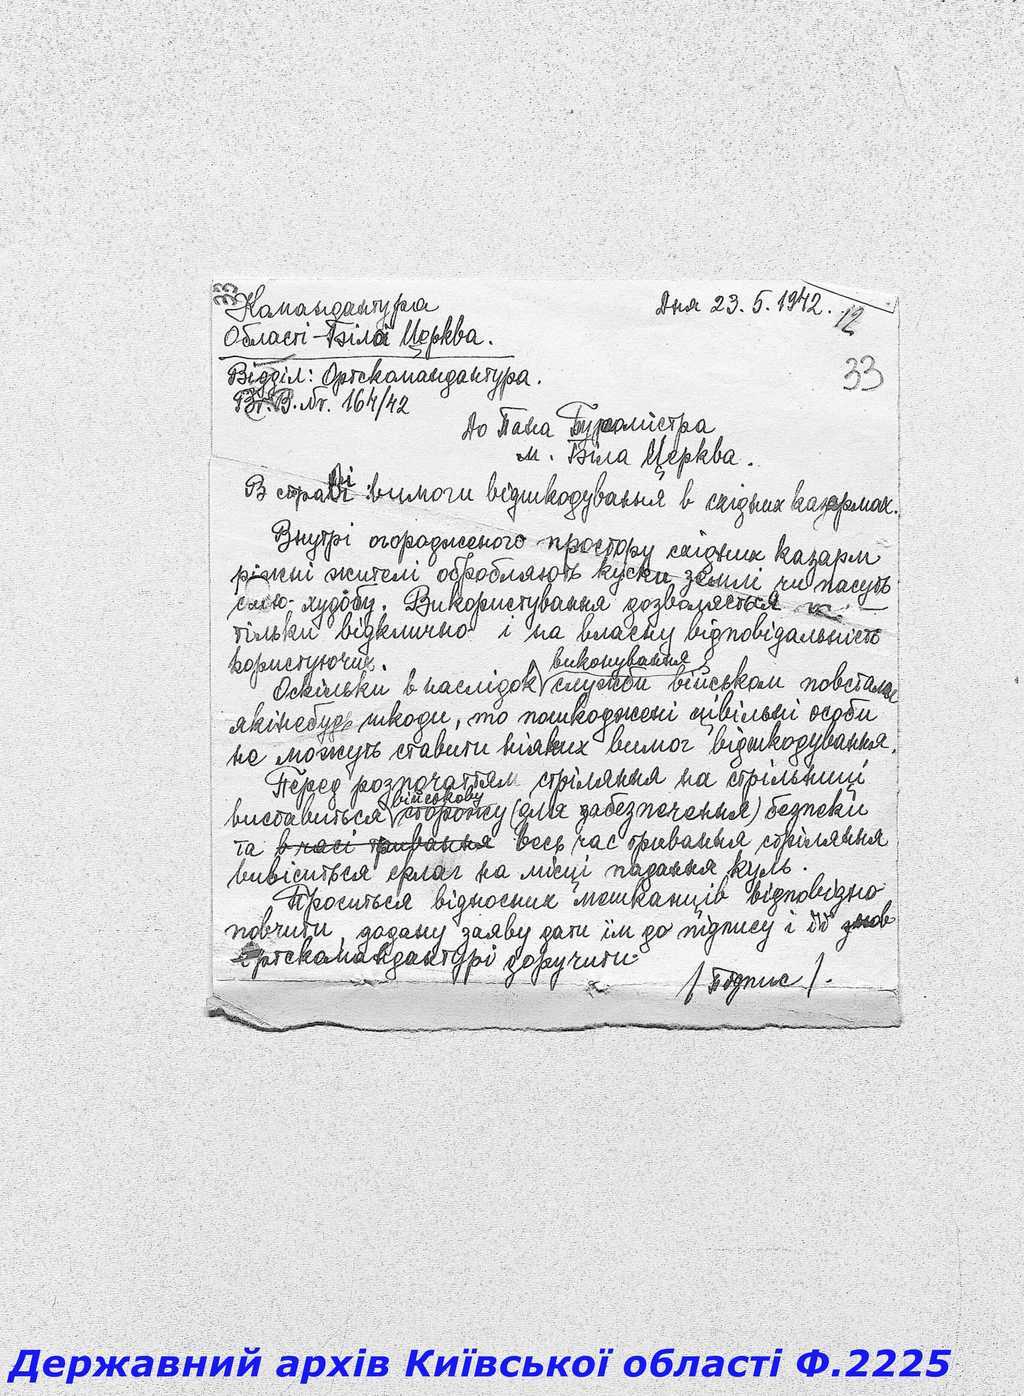 33
Командантура
Області Біла Церква.
Дня 23.5.1942.
12
33
Відділ: Ортскомандантура.
Бг. В. Nr. 164/42
До Пана Бурґомістра
м. Біла Церква.
В справі: вимоги відшкодування в східних казармах.
Внутрі огородженого простору східних казарм
ріжні жителі обробляють куски землі чи пасуть
свою худобу. Використування дозволяється
тільки відклично і на власну відповідальність
користуючих.
Оскільки внаслідок виконування служби військом повстали
якінебудь шкоди, то пошкоджені цівільні особи
не можуть ставити ніяких вимог відшкодування.
Перед розпочаттям стріляння на стрільниці
виставиться військову сторожу (для забезпечення) безпеки
та в часі тривання весь час тривання стріляння
вивіситься флаг на місці падання куль.
Проситься відносних мешканців відповідно
повчити, додану заяву дати їм до підпису і її знов
Ортскомандантурі доручити.
/Підпис/.
Державний архів Київської області Ф.2225